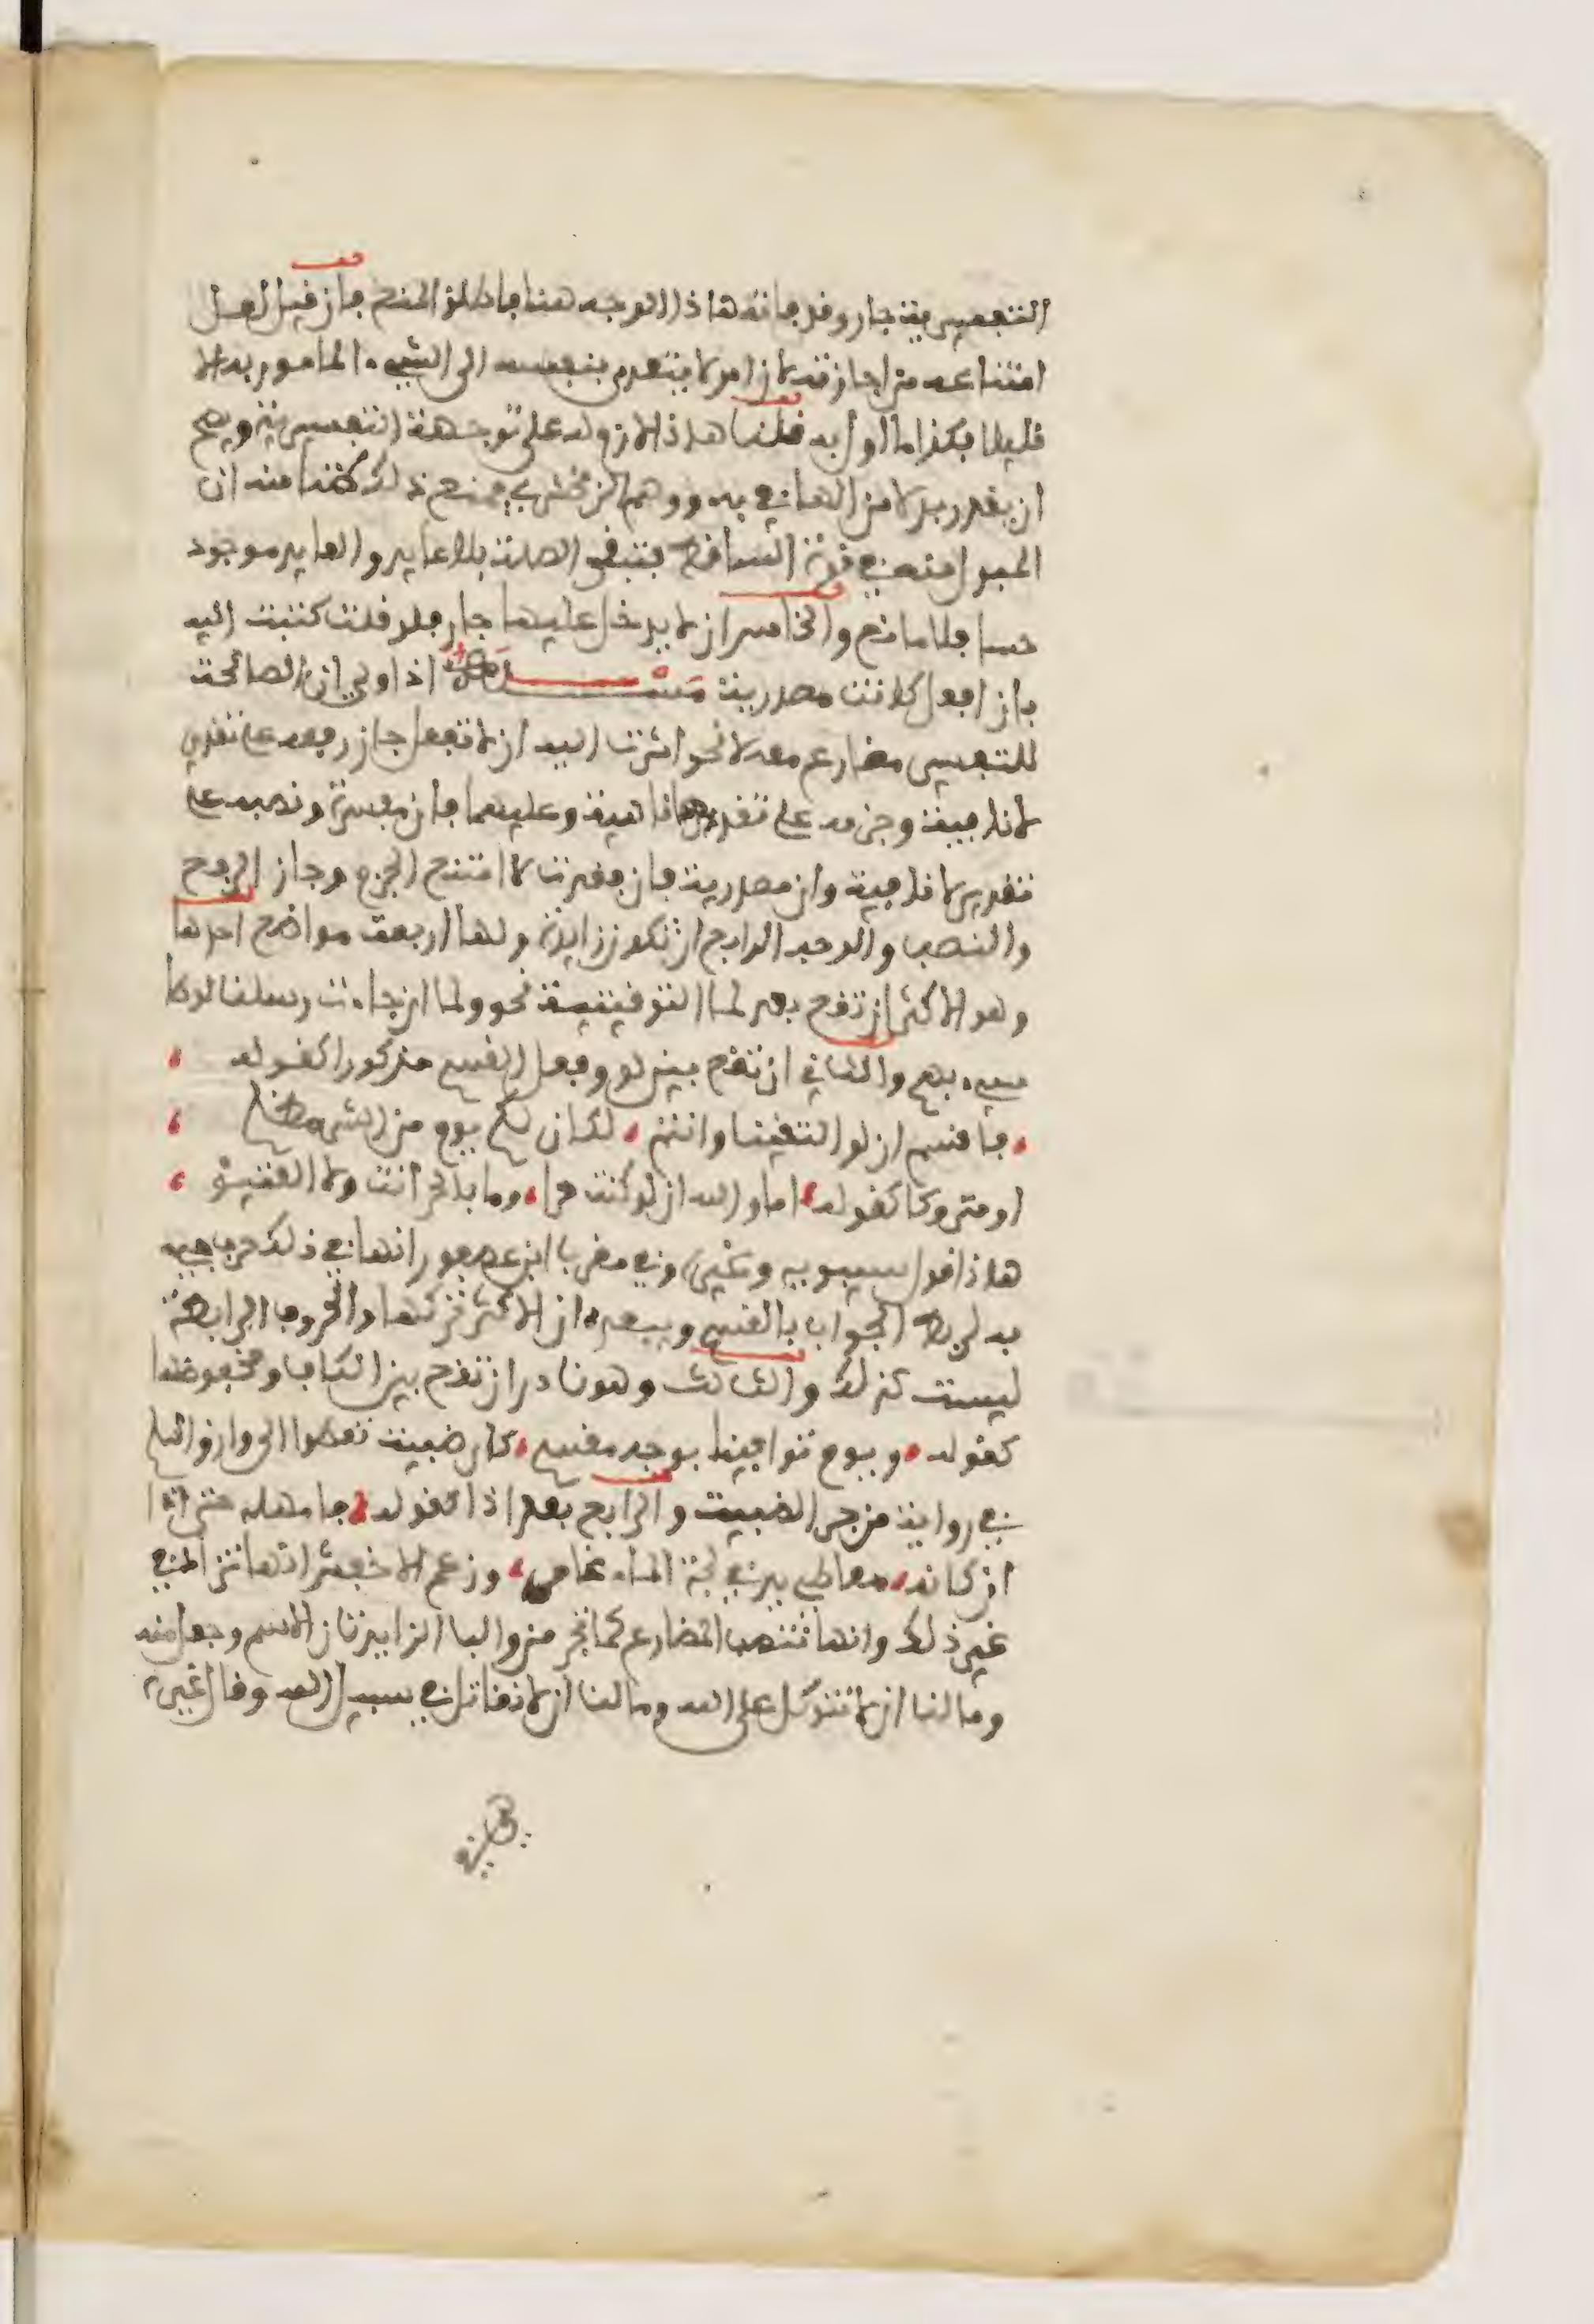 التفسيرية جار وقد فاته هاذا الوجه هنا فاطلق المنع فان قيل لعل
امتناعه من اجازته لان امر لا يتعدى بنفسه الى الشيء المامور به الا
قليلا فكذا ما اول به قلنا هاذا لازم له على توجيهه التفسيرية ويصح
ان يقدر بدلا من الهاء في به ووهم الزمخشري فمنع ذلك ظنا منه ان
المبدل منه في قوة الساقط فتبقى الصلة بلا عايد والعايد موجود
حسا فلا مانع والخامس ان لا يدخل عليها جار فلو قلت كتبت اليه
بان افعل كانت مصدرية مسئلة اذا ولي ان الصالحة
للتفسير مضارع معه لا نحو اشرت اليه ان لا تفعل جاز رفعه على تقدير
لا نافية وجزمه على تقديرها ناهية وعليهما فان مفسرة ونصبه على
تقدير لا نافية وان مصدرية فان فقدت لا امتنع الجزم وجاز الرفع
والنصب والوجه الرابع ان تكون زايدة ولها اربعة مواضع احدها
وهو الاكثر ان تقع بعد لما التوقيتية نحو ولما ان جاءت رسلنا لوطا
سيء بهم والثاني ان تقع بين لو وفعل القسم مذكورا كقوله
فاقسم ان لو التقينا وانتم لكان لكم يوم من الشر مظلم
او متروكا كقوله اما والله ان لو كنت حرا وما بالحر انت ولا العتيق
هاذا قول سيبويه وغيره وفي مقرب ابن عصفور انها في ذلك حرف جيء
به لربط الجواب بالقسم ويبعده ان الاكثر تركها والحروف الرابطة
ليست كذلك والثالث وهو نادر ان تقع بين الكاف ومخفوضها
كقوله ويوم توافينا بوجه مقسم كان ظبية تعطوا الى وارق السلم
في رواية من جر الظبية والرابع بعد اذا كقوله فامهله حتى اذا
ان كانه معاطي يد في لجة الماء غامر وزعم الاخفش انها تزاد في
غير ذلك وانها تنصب المضارع كما تجر من والبا الزايدتان الاسم وجعل منه
وما لنا ان لا نتوكل على الله وما لنا ان لا نقاتل في سبيل الله وقال غيره